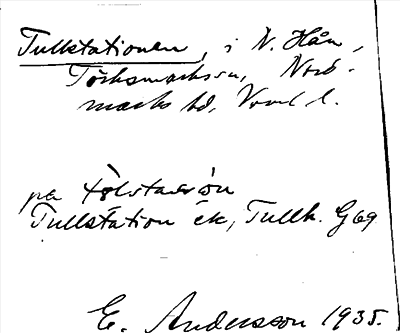 Tullstationen, i N. Hån,
Töcksmarks sn, Nord-
marks hd, Vrml l.
på
Tullstation ék, Tullk. G69
E. Andersson 1935.